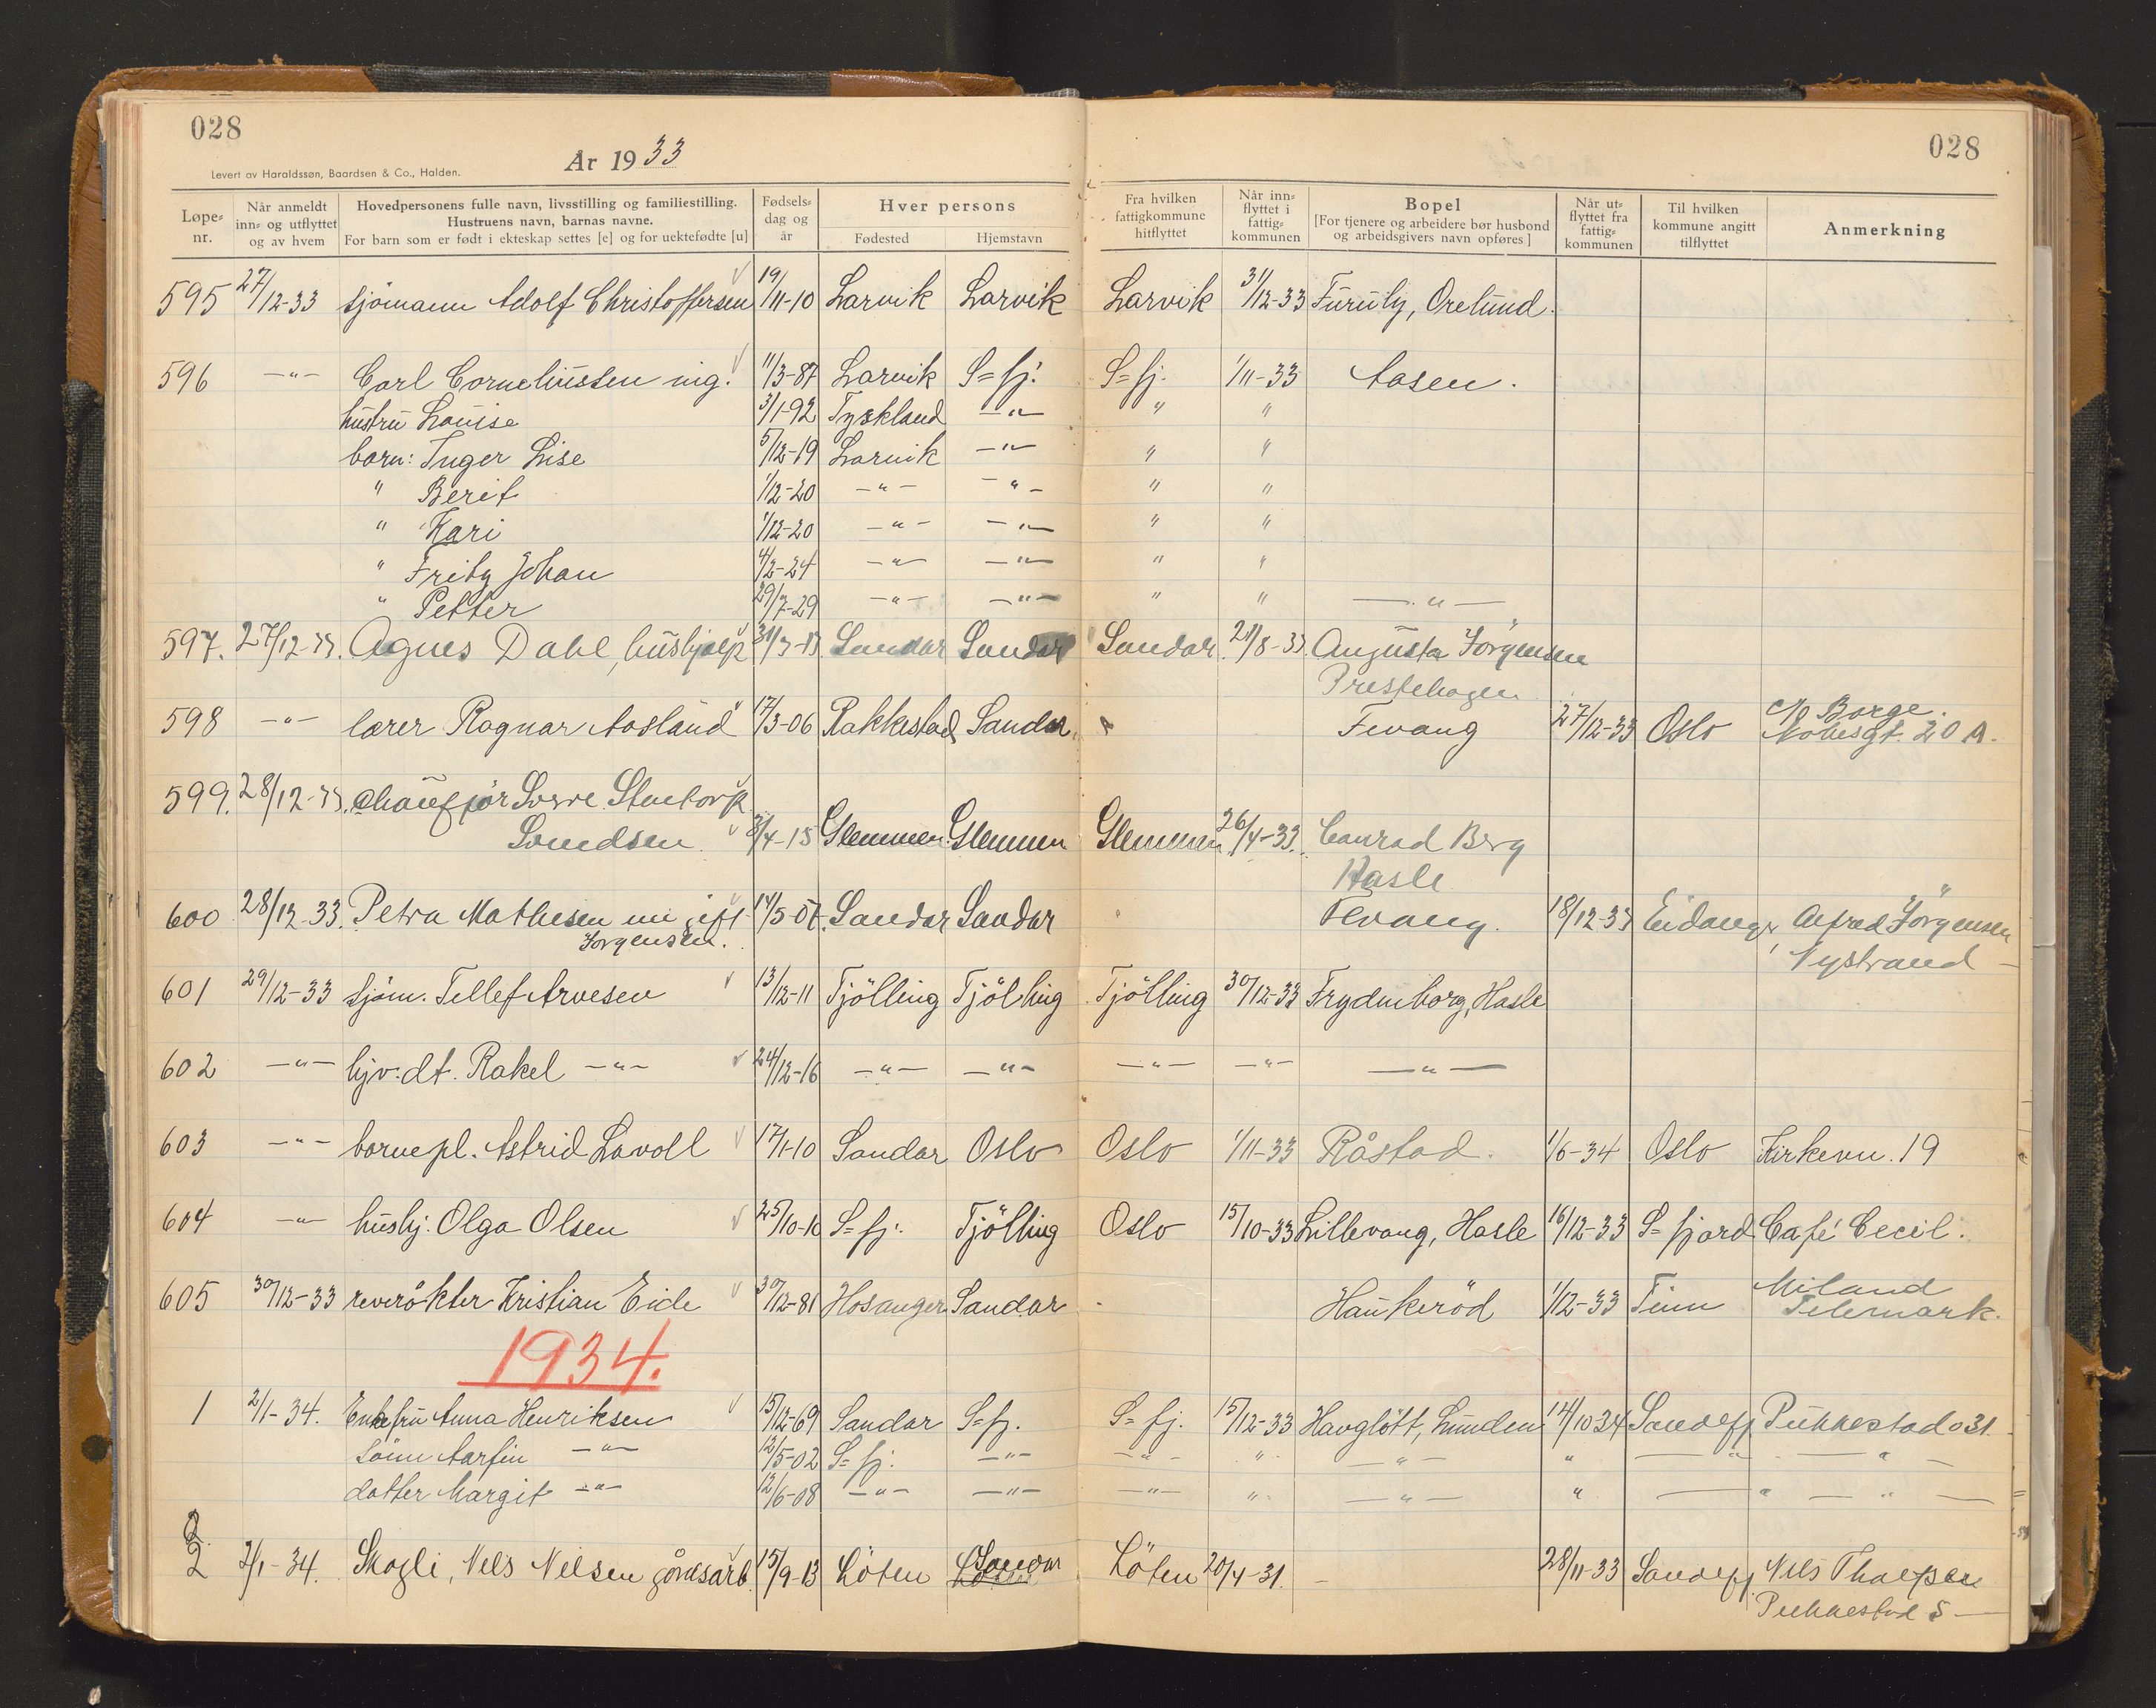 028
028
År 1933
Levert av Haraldssøn, Baardsen & Co., Halden.
Løpe-nr. Når anmeldt inn- og utflyttet og av hvem Hovedpersonens fulle navn, livsstilling og familiestilling. Hustruens navn, barnas navne. For barn som er født i ekteskap settes [e] og for uektefødte [u] Fødsels-dag og år Hver persons Fødested Hjemstavn Fra hvilken fattigkommune hitflyttet Når inn-flyttet i fattig-kommunen Bopel [For tjenere og arbeidere bør husbond og arbeidsgivers navn opføres] Når ut-flyttet fra fattig-kommunen Til hvilken kommune angitt tilflyttet Anmerkning
595 27/12-33 sjömann Adolf Christoffersen 19/11-10 Larvik Larvik Larvik 31/12-33 Furuly, Orelund.
596 -"- Carl Corneliussen ing. 11/3-87 Larvik S=fj. S=fj. 1/11-33 Aasen.
hustru Louise 3/1-92 Tyskland -"- " "
barn: Inger Lise 5/12-19 Larvik -"- " "
" Berit 1/12-20 -"- -"- " "
" Kari 1/12-20 -"- -"- " "
" Fritz Johan 4/2-24 -"- -"- " "
" Petter 29/7-29 -"- -"- " " -"-
597. 27/12-33. Agnes Dahl, hushjelp 31/3-13 Sandar Sandar Sandar 21/8-33 Augusta Jörgensen
Prestehagen
598 -"- lærer Ragnar Aasland 17/3-06 Rakkestad Sandar Fevang 27/12-33 Oslo c/o Borge.
Nobelsgt. 20 A.
599. 28/12-33. chaufför Sverre Stentorp
Svendsen 3/4-15 Glemmen Glemmen Glemmen 26/4-33. Conrad Berg
Hasle
600 28/12-33. Petra Mathisen nu gift 14/5-07. Sandar Sandar Fevang. 18/12-33 Eidanger Alfred Jörgensen
Jorgensen. Nystrand
601 29/12-33 sjöm. Tellef Arvesen 13/12-11 Tjölling Tjölling Tjölling 30/12-33 Frydenborg, Hasle
602 -"- hjv. dt. Rakel -"- 24/12-16 -"- -"- -"- -"- -"-
603 -"- barnepl. Astrid Lavoll 17/1-10 Sandar Oslo Oslo 1/11-33 Råstad. 1/6-34 Oslo Kirkevn. 19
604 -"- hushj. Olga Olsen 25/10-10 S=fj. Tjölling Oslo 15/10-33 Lillevang, Hasle 16/12-33 S=fjord Café Cecil.
605 30/12-33 reverökter Kristian Eide 30/12-81 Hosanger Sandar Haukeröd 1/12-33 Tinn Miland
Telemark.
1934.
1 2/1-34. Enkefru Anna Henriksen 15/12-69 Sandar S=fj. S=fj. 15/12-33 Havglött, Lunden 14/10 34 Sandefj. Pukkestad 031.
sönn Aarfin -"- 12/5-02 S=fj. -"- -"- " -"- " -"- -"-
datter Margit -"- 12/6-08 -"- -"- -"- " -"- " -"- -"-
2
2 2/1-34. Skogli, Nels Nelsen gårdsarb. 15/9-13 Löten Sandar Löten 20/4-31. - 28/11-33 Sandefj. Nils
Pukkestad 5